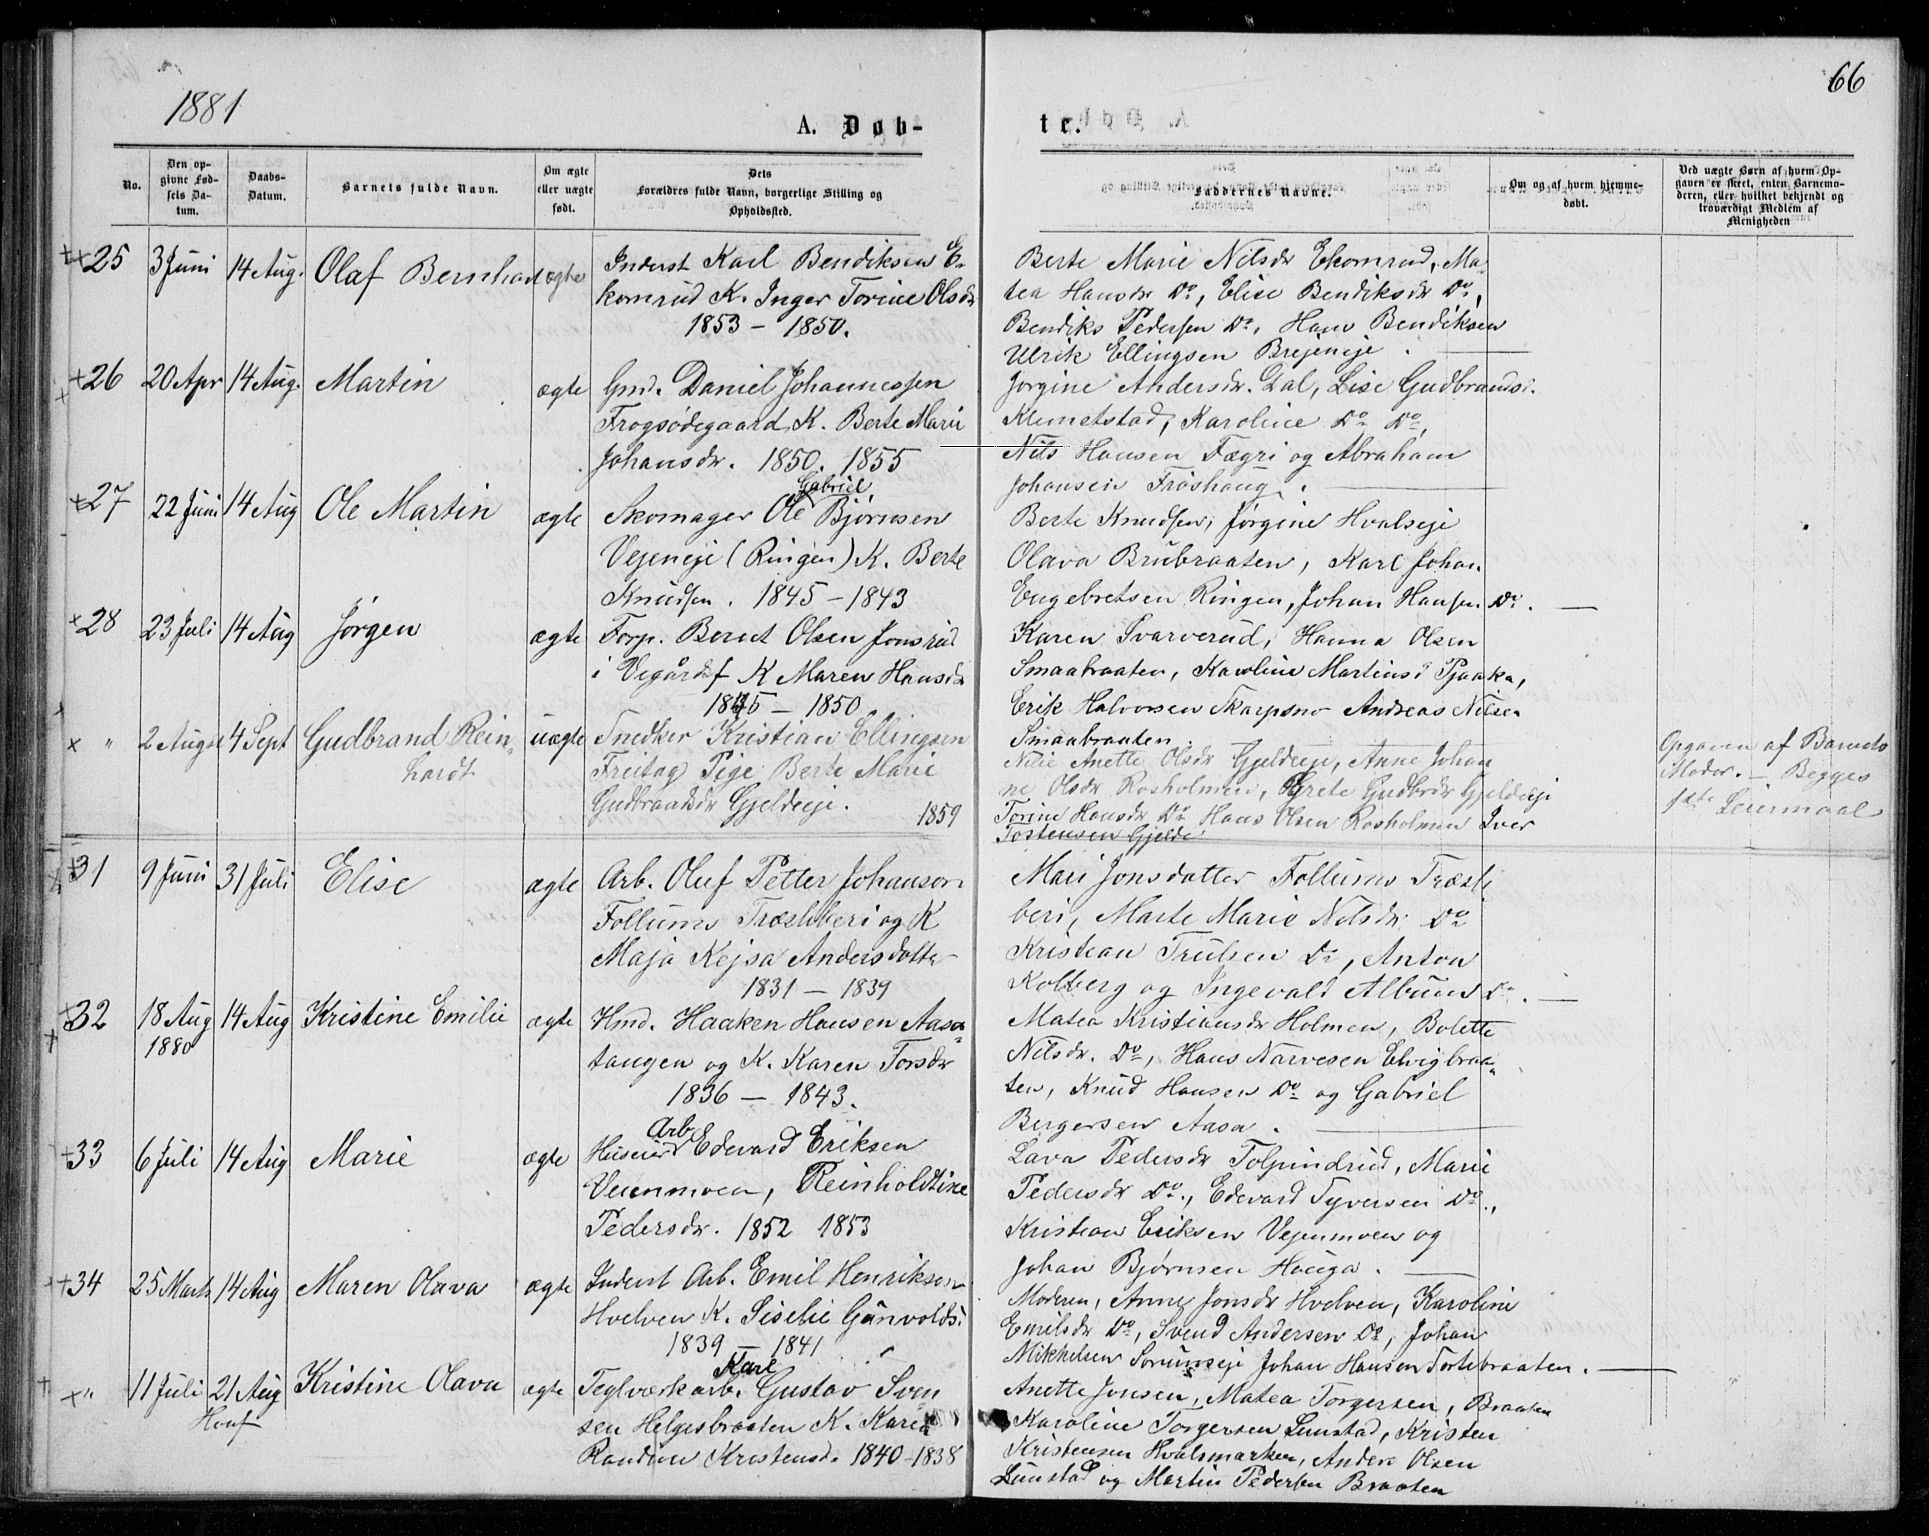 1881
66
A. Døb-
te.
No.
Den op-
givne Fød-
sels Da-
tum.
Daabs-
Datum.
Barnets fulde Navn.
Om ægte
eller uægte
født.
Dets
Forældres fulde Navn, borgerlige Stilling og
Opholdssted.
Faddernes Navne.
Om og af hvem hjemme-
døbt.
Ved uægte Børn af hvem Op-
gaven er skeet, enten Barnemo-
deren, eller hvilket bekjendt og
troværdigt Medlem af
Menigheden
25 3 Juni 14 Aug. Olaf Bernhard ægte Inderst Karl Bendiksen E-
komrud K. Inger Torine Olsdr
1853 - 1850.
Berte Marie Nilsdr Ekornrud, Ma-
tea Hansdr Do, Elise Bendiksdr Do,
Bendiks Pedersen Do, Hans Bendiksen
Ulrik Ellingsen Brejeneje.
26 20 Apr 14 Aug. Martin ægte Gmd. Daniel Johannessen
Frogsødegaard K. Berte Marie
Johansdr. 1850. 1855
Jørgine Andersdr. Dal, Lise Gudbrandsd.
Klemetstad, Karoline Do Do,
Nils Hansen Fægri og Abraham
Johansen Frøshaug.
27 22 Juni 14 Aug Ole Martin ægte Skomager Ole Gabriel Bjørnsen
Vejeneje (Ringen) K. Berte
Knudsen. 1845 - 1843
Berte Knudsen, Jørgine Hvalseje
Olava Brubraaten, Karl Johan
Engebretsen Ringen, Johan Hansen Do.
28 23 Juli 14 Aug Jørgen ægte Forp. Bernt Olsen Jonsrud
i Vegårdsf K Maren Hansdr
1845 - 1850
Karen Svarverud, Hanna Olsen
Smaabraaten, Karoline Martinsd Pjaaka,
Erik Halvorsen Skarpsno Andreas Nilsen
Smaabraaten.
" 2 August 4 Sept Gudbrand Rein-
hardt
uægte Snedker Kristian Ellingsen
Freitag Pige Berte Marie
Gudbrandsdr Gjeldeje. 1859
Anette Olsdr Gjeldeje, Anne Johan
ne Olsdr Rosholmen, Grete Gudbrdr Gjeldeje
Torine Hansdr Do Hans Olsen Rosholmen Iver
Tostensen Gjelde
Opgaven af Barnets
Moder. - Begges
1ste Leiermaal
31 9 Juni 31 Juli Elise ægte Arb. Oluf Petter Johanson
Follums Træsliberi og K
Maja Kejsa Andersdatter
1831 - 1839
Mari Jonsdatter Follums Træsli
beri, Marte Marie Nilsdr Do
Kristian Trulsen Do, Anton
Kolberg og Ingevald Albums Do.
32 18 Aug
1880
14 Aug Kristine Emilie ægte Hmd. Haaken Hansen Aasa-
tangen og K. Karen Torsdr
1836 - 1843.
Matea Kristiansdr Holmen, Bolette
Nilsdr. Do, Hans Narvesen Elvigbraa-
ten, Knud Hansen Do og Gabriel
Bergersen Aasa.
33 6 Juli 14 Aug Marie ægte Husmd Arb Edevard Eriksen
Veienmoen, Reinholdtine
Pedersdr. 1852 1853
Lava Pedersdr Tolpindrud, Marie
Pedersdr Do., Edevard Syversen Do.,
Kristian Eriksen Vejenmoen og
Johan Bjørnsen Houga.
34 25 Marts 14 Aug Maren Olava ægte Inderst Arb. Emil Henriksen
Hvelven K. Siselie Gunvoldsd
1839 - 1841
Moderen, Anne Jonsdr Hvelven, Karoline
Emilsdr Do, Svend Andersen Do, Johan
Mikkelsen Sørumseje Johan Hansen Tortebraaten.
" 11 Juli 21 Aug
Hval
Kristine Olava ægte Teglværkarb. Karl Gustav Sven
sen Helgesbraaten K. Karen
Randine Kristensd. 1840 - 1838
Anette Jonsen, Matea Torgersen, Braaten
Karoline Torgersen Lunstad, Kristen
Kristensen Hvalsmarken, Anders Olsen
Lunstad og Martin Pedersen Braaten